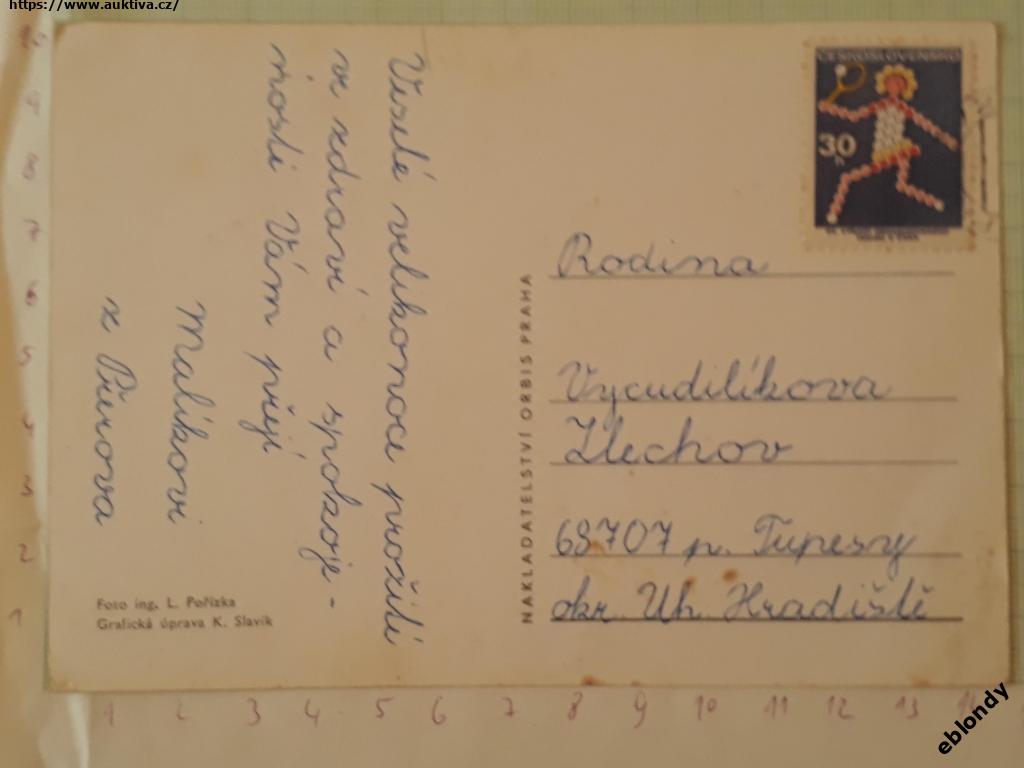 https://www.auktiva.cz/
Veselé velikonoce prožité
ve zdraví a spokoje-
nosti Vám přejí
Malíkovi
z Přírova
Foto ing. L. Pořízka
Grafická úprava K. Slavík
NAKLADATELSTVÍ ORBIS PRAHA
ČESKOSLOVENSKO
30
h
Rodina
Vycudilíkova
Zlechov
68707 p. Tupesy
okr. Uh. Hradiště
10
9
8
7
6
5
4
3
2
1
1 2 3 4 5 6 7 8 9 10 11 12 13 14
eblondy